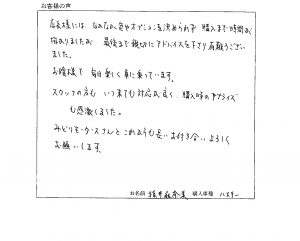 お客様の声
店長様には なかなか色やオプションを決められず 購入まで時間が
掛かりましたが 最後まで親切にアドバイスを下さり有難うござい
ました。
お陰様で 毎日楽しく車に乗っています。
スタッフの方も いつ来ても対応が良く、購入時のサプライズ
も感激しました。
みどりモータースさんとこれからも長いお付き合いよろしく
お願いします。
お名前 購入車種 ハスラー